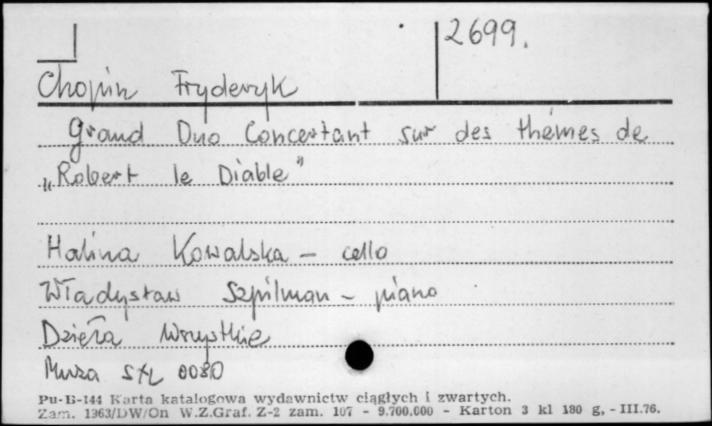 2699.
Chopin Fryderyk
Grand Duo Concertant sur des thèmes de
„Robert le Diable"
Halina Kowalska – cello
Władysław Szpilman – piano
Dzieła Wszystkie
Muza SXL 0080
Pu-B-144 Karta katalogowa wydawnictw ciągłych i zwartych.
Zam. 1363/DW/On W.Z.Graf. Z-2 zam. 107 - 9.700.000 - Karton 3 kl 180 g, - III.76.